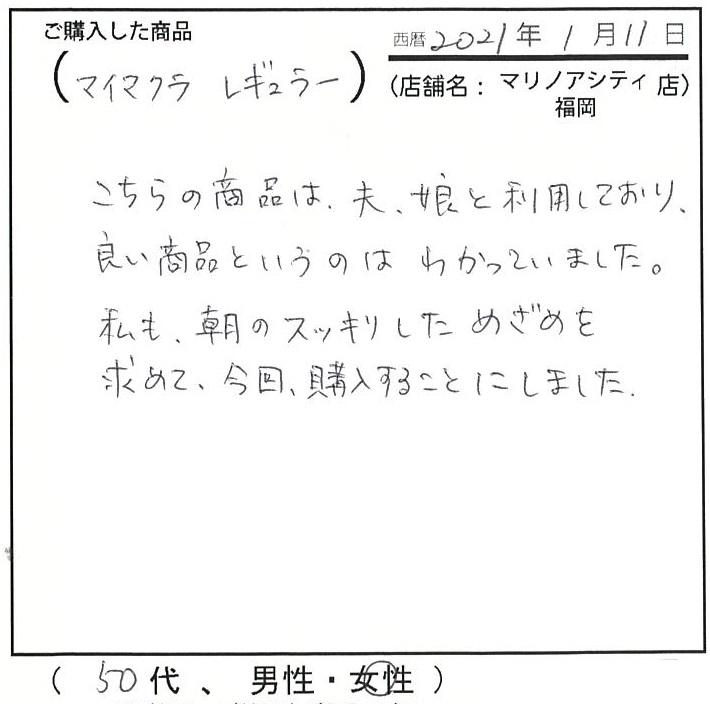 ご購入した商品
西暦 2021年 1月11日
(マイマクラ レギュラー)
(店舗名: マリノアシティ福岡 店)
こちらの商品は、夫、娘と利用しており、
良い商品というのは わかっていました。
私も、朝のスッキリした めざめを
求めて、今回、購入することにしました.
( 50代 、 男性・女性 )